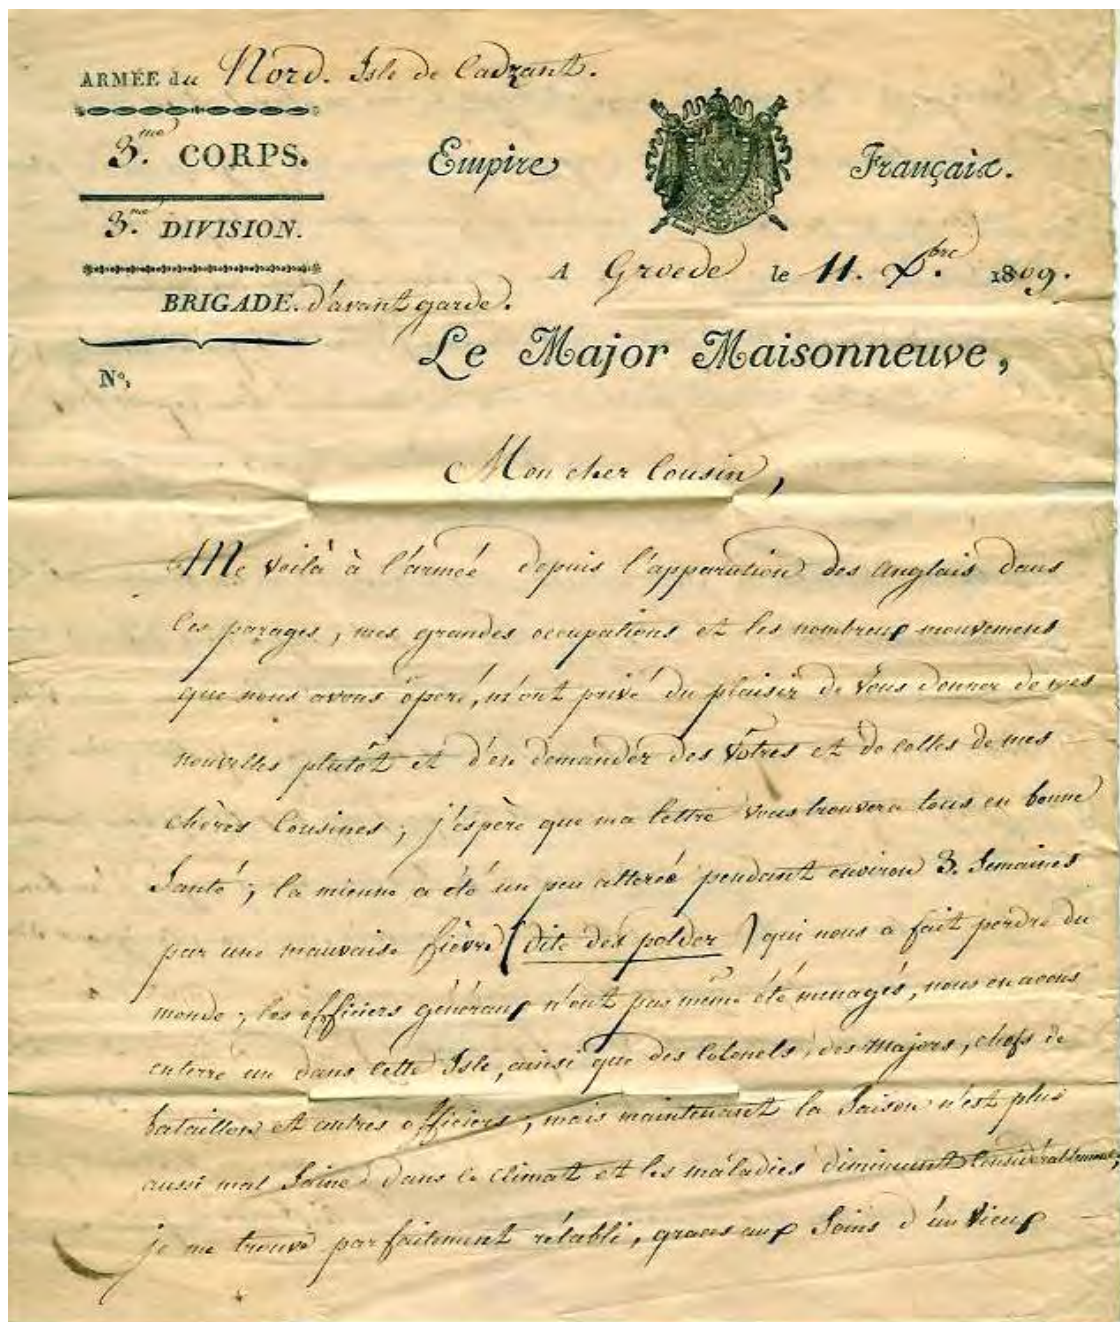 ARMÉE du Nord. Isle de Cadzant.
3.me CORPS.
Empire Français.
3.me DIVISION.
A Groede le 11. Xbre. 1809.
BRIGADE. d'avant garde.
Le Major Maisonneuve,
No.
Mon cher Cousin,
Me voilà à l'armée depuis l'apparution des anglais dans
ces parages, mes grandes occupations et les nombreux mouvemens
que nous avons opéré, m'ont privé du plaisir de vous donner de mes
nouvelles plutôt et d'en demander des vôtres et de celles de mes
chères Cousines; j'espère que ma lettre vous trouvera tous en bonne
Santé; la mienne a été un peu alterée pendant environ 3. Semaines
par une mauvaise fièvre (dite des polder) qui nous a fait perdre du
monde; les officiers généraux n'ont pas même été menagés, nous en avons
enterré un dans cette Isle, ainsi que des Colonels, des majors, chefs de
bataillon et autres officiers; mais maintenant la Saison n'est plus
aussi mal Saine dans ce climat et les maladies diminuent Considérablement;
je me trouve parfaitement rétabli, graces aux Soins d'un vieux